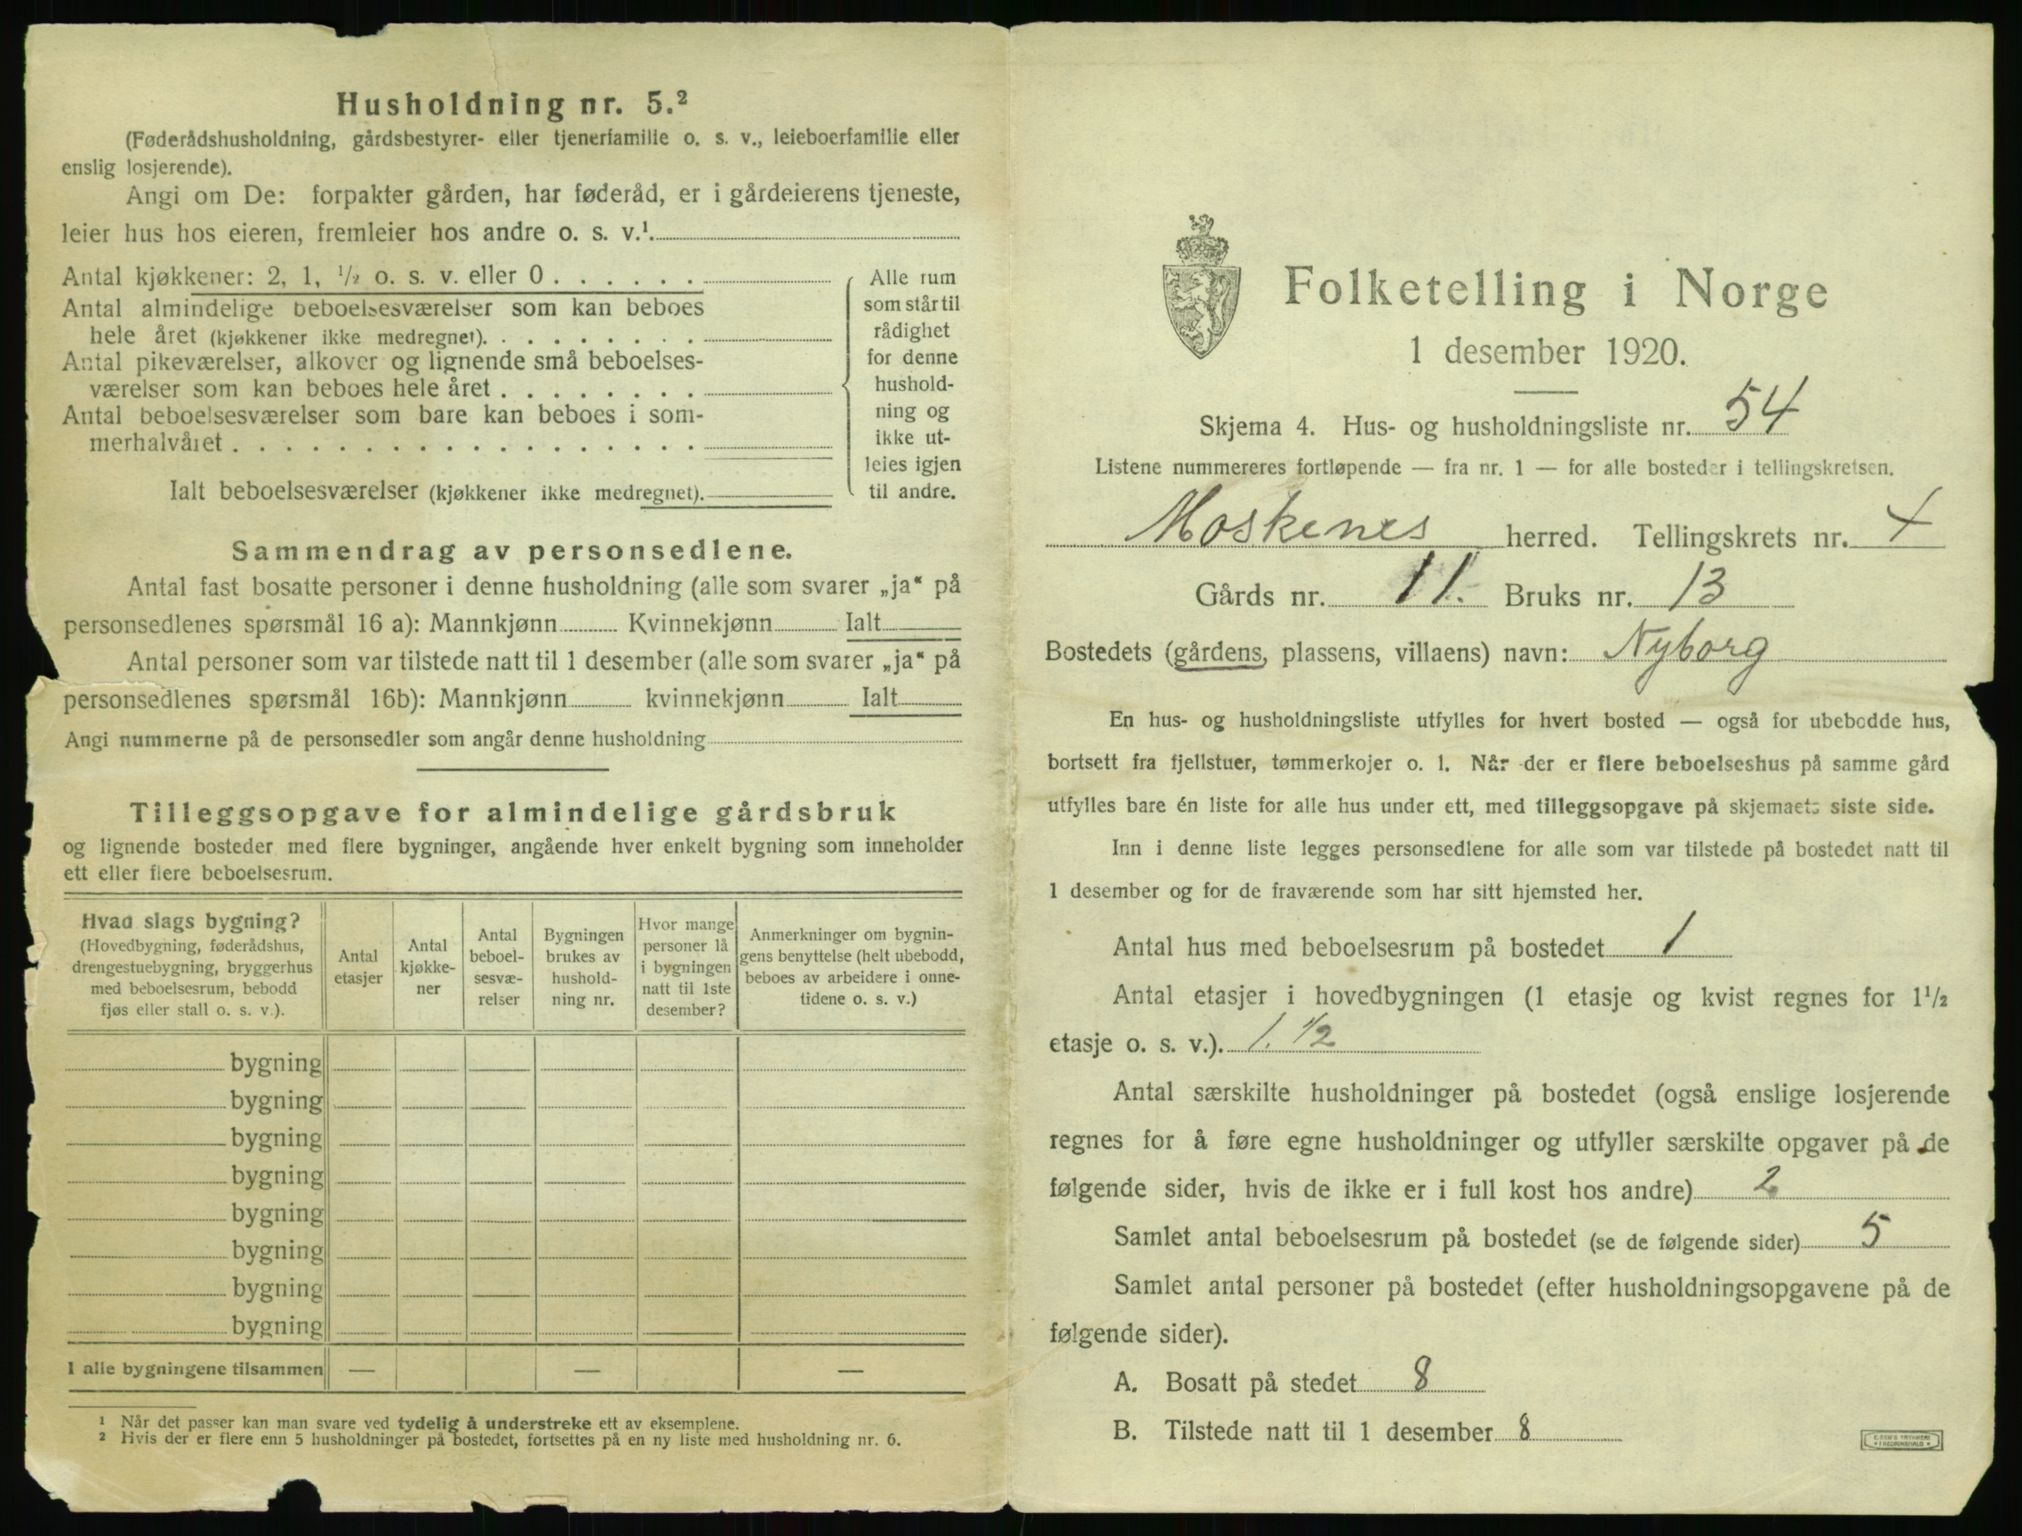 Husholdning nr. 5.²
(Føderådshusholdning, gårdsbestyrer- eller tjenerfamilie o. s. v., leieboerfamilie eller
enslig losjerende).
Angi om De: forpakter gården, har føderåd, er i gårdeierens tjeneste,
leier hus hos eieren, fremleier hos andre o. s. v.¹
Antal kjøkkener: 2, 1, ½ o. s. v. eller 0 . . . . . .
Antal almindelige beboelsesværelser som kan beboes
hele året (kjøkkener ikke medregnet). . . . . . . . .
Antal pikeværelser, alkover og lignende små beboelses-
værelser som kan beboes hele året . . . . . . . .
Antal beboelsesværelser som bare kan beboes i som-
merhalvåret . . . . . . . . . . . . . . . . . .
Ialt beboelsesværelser (kjøkkener ikke medregnet).
Alle rum
som står til
rådighet
for denne
hushold-
ning og
ikke ut-
leies igjen
til andre.
Sammendrag av personsedlene.
Antal fast bosatte personer i denne husholdning (alle som svarer „ja“ på
personsedlenes spørsmål 16 a): Mannkjønn Kvinnekjønn Ialt
Antal personer som var tilstede natt til 1 desember (alle som svarer „ja“ på
personsedlenes spørsmål 16b): Mannkjønn kvinnekjønn Ialt
Angi nummerne på de personsedler som angår denne husholdning
Tilleggsopgave for almindelige gårdsbruk
og lignende bosteder med flere bygninger, angående hver enkelt bygning som inneholder
ett eller flere beboelsesrum.
Hvad slags bygning?
(Hovedbygning, føderådshus,
drengestuebygning, bryggerhus
med beboelsesrum, bebodd
fjøs eller stall o. s. v.).
Antal
etasjer
Antal
kjøkke-
ner
Antal
beboel-
sesvæ-
relser
Bygningen
brukes av
hushold-
ning nr.
Hvor mange
personer lå
i bygningen
natt til 1ste
desember?
Anmerkninger om bygnin-
gens benyttelse (helt ubebodd,
beboes av arbeidere i onne-
tidene o. s. v.)
bygning
bygning
bygning
bygning
bygning
bygning
bygning
bygning
I alle bygningene tilsammen — — —
¹ Når det passer kan man svare ved tydelig å understreke ett av eksemplene.
² Hvis der er flere enn 5 husholdninger på bostedet, fortsettes på en ny liste med husholdning nr. 6.
Folketelling i Norge
1 desember 1920.
Skjema 4. Hus- og husholdningsliste nr. 54
Listene nummereres fortløpende — fra nr. 1 — for alle bosteder i tellingskretsen.
Moskenes herred. Tellingskrets nr. 4
Gårds nr. 11. Bruks nr. 13
Bostedets (gårdens, plassens, villaens) navn: Nyborg
En hus- og husholdningsliste utfylles for hvert bosted — også for ubebodde hus,
bortsett fra fjellstuer, tømmerkojer o. l. Når der er flere beboelseshus på samme gård
utfylles bare én liste for alle hus under ett, med tilleggsopgave på skjemaets siste side.
Inn i denne liste legges personsedlene for alle som var tilstede på bostedet natt til
1 desember og for de fraværende som har sitt hjemsted her.
Antal hus med beboelsesrum på bostedet 1
Antal etasjer i hovedbygningen (1 etasje og kvist regnes for 1½
etasje o. s. v.). 1.½
Antal særskilte husholdninger på bostedet (også enslige losjerende
regnes for å føre egne husholdninger og utfyller særskilte opgaver på de
følgende sider, hvis de ikke er i full kost hos andre) 2
Samlet antal beboelsesrum på bostedet (se de følgende sider) 5
Samlet antal personer på bostedet (efter husholdningsopgavene på de
følgende sider).
A. Bosatt på stedet 8
B. Tilstede natt til 1 desember 8